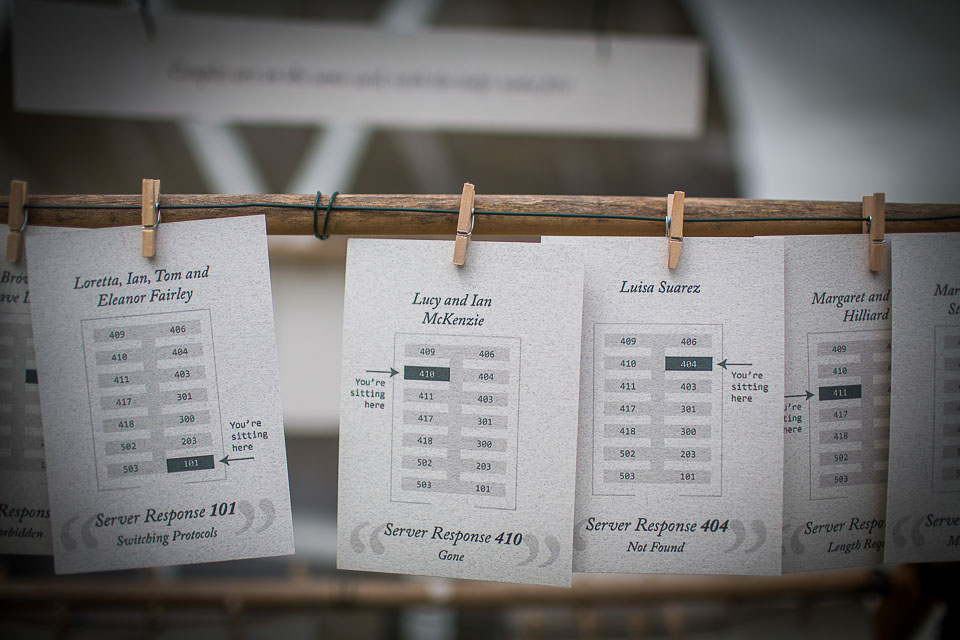 Loretta, Ian, Tom and
Eleanor Fairley
409 406
410 404
411 403
417 301
418 300
502 203
503 101
You're
sitting
here
Server Response 101
Switching Protocols
Lucy and Ian
McKenzie
409 406
410 404
411 403
417 301
418 300
502 203
503 101
You're
sitting
here
Server Response 410
Gone
Luisa Suarez
409 406
410 404
411 403
417 301
418 300
502 203
503 101
You're
sitting
here
Server Response 404
Not Found
Margaret and
Hilliard
409
410
411
417
418
502
503
here
Server
Length